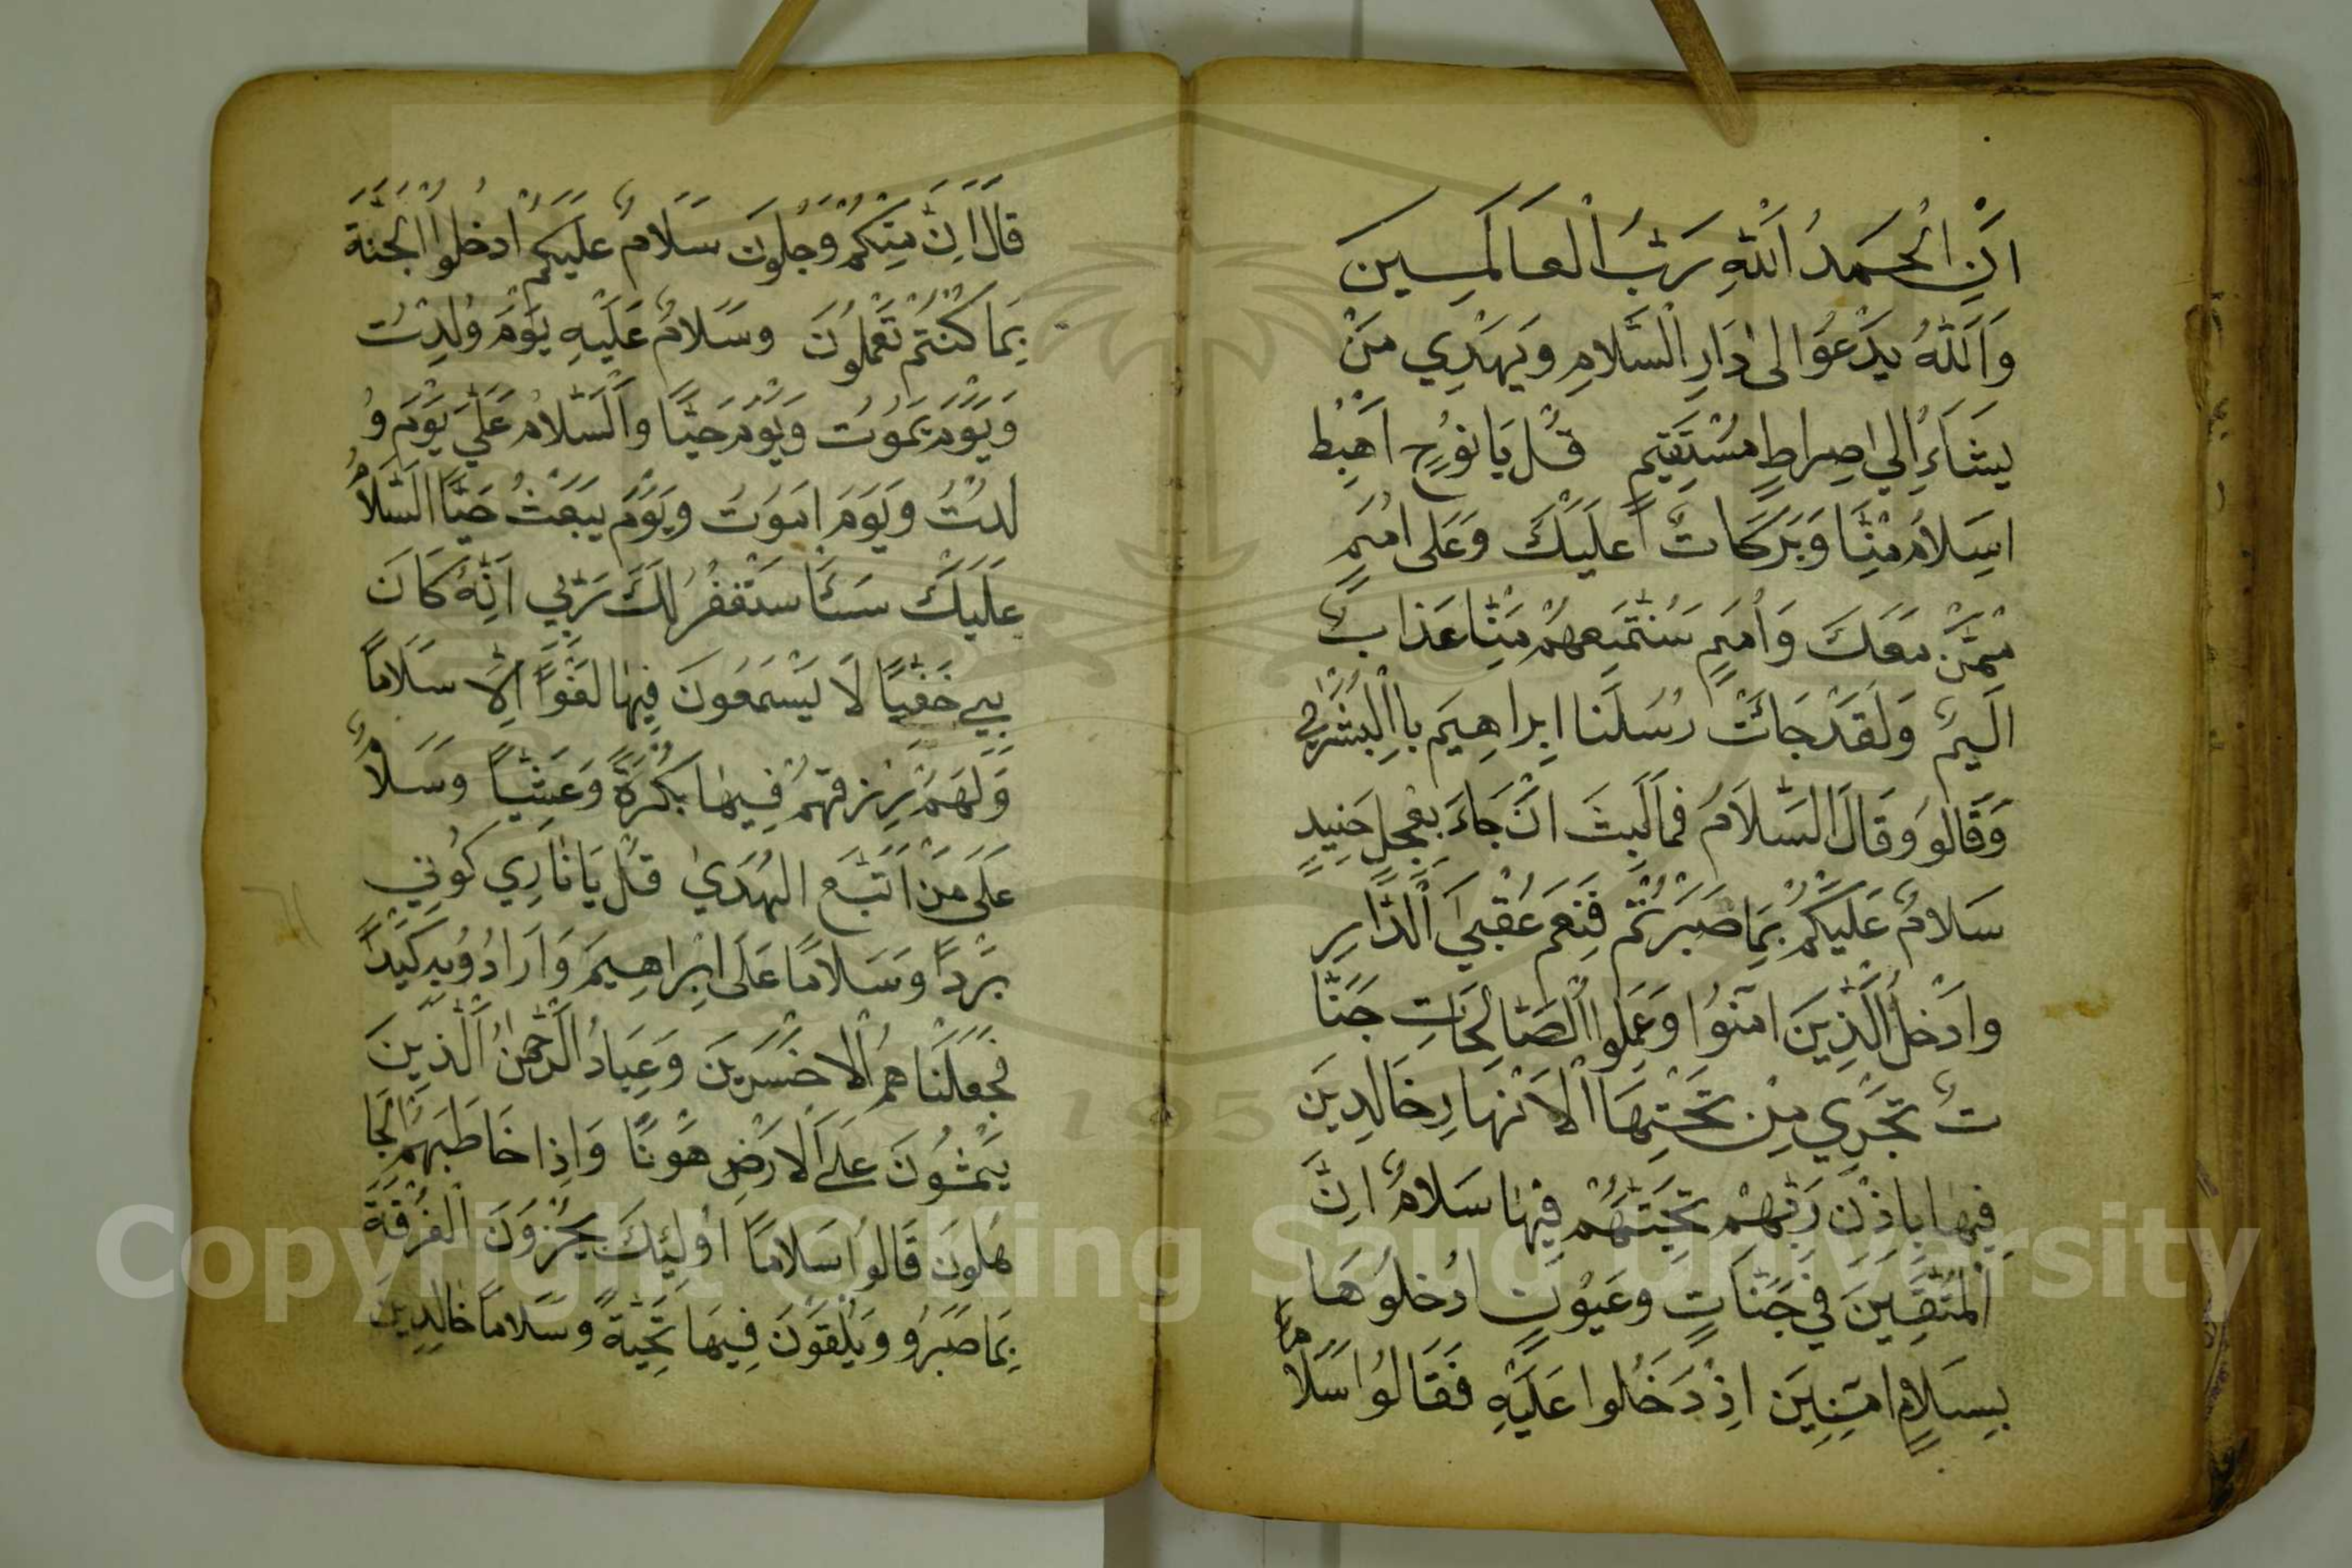 اَنِ الْحَمْدُ اَللّٰهِ رَبُّ الْعَالَمِينَ
وَاَللّٰهُ يَدْعُوَا لى دَارِ الْسَّلَامِ وَيَهْدِي مَنْ
يَشَآءُ اِلي صِراطٍ مُسْتَقِيمٍ قُل يَا نوُحِ اَهْبِط
اسِلَامٌ مِنَّا وَبَرَكَاتٌ اً عَلَيْكَ وَعَلى امُمٍ
مِمَّنْ مَعَكَ وَاُمَمٍ سَنُمَتِّعهُمْ مِنَّا عَذابٌ
اَلَيمٌ وَلَقَدْ جَائَتْ رُسُلَنا اِبراهِيَم بااِلْبُشْرٰي
وَقَالوَ وَقَالَ السَّلَامُ فَمالَبِثَ انَ جَاءَ بِعْجلٍ حَنِيدٍ
سَلَامٌ عَلَيْكُمْ بِمَا صَبَرْتُمْ فَنِعَم عُقْبيَ الْدَّارِ
وادْخلُ الَّذِينَ امَنوُا وَعَمِلوا الصَّالِحَاتِ جَنّا
تٌ تَجْرِي مِن تَحْتِهَا اْلاَنْهارِ خَالدِينَ
فِيها بِاذِنْ رَبّهِمْ تَحِيَّتهُمْ فِيهَا سَلَامٌ اِنَّ
اْلمُتَّقِينَ فِي جَنّاتٍ وَعَيُونٍ ادُخلُوهَا
بِسَلامٍ امَنِينَ اذِ دَخَلوا عَلَيْهِ فَقَالوُا سَلَا مًا
قالَ اِنَ مِنِكُمْ وَجِلوُنَ سَلَامٌ عَلَيكُمْ اُدخلُوا الْجَنَّةَ
بِمَا كُنْتُم تَعْمَلوُنَ وسَلَامٌ عَلَيْهِ يَوْمَ وُلدِتُ
وَيَوْمَ يَموُتُ وَيَوْمَ حَيّاً وَاَلْسَّلامُ عَلَيَ يَوْمَ وُ
لدِتُ وَيَوَمَ امَوُتُ وَيَوْمَ يبَعَثُ حَيّاً السَّلَامُ
عَلَيَكَ سَئَا سَتَغْفِرُ لكَ رَبّي اَنِّهُ كَانَ
بيِ خَفِيًا لَا يَسْمَعُونَ فِيهَا لَغْواً اِلَّا سَلَاماً
وَلَهمُ رِزقهُم فِيهَا بُكْرَةً وَعَشِيّاً وسَلَامٌ
عَلَى مَنْ اَتّبَع الهُدَيٰ قُل يَا نَارِي كوُنِي
بَرْداً وسَلامًا عَلَى ابِراهِيمَ وَاَرَادُوُبهِ كَيْداً
فجَعَلَناهمُ اْلاخسَرِينَ وَعِبَادُ الرَّحْمنُ الَّذِينَ
يَمْشُونَ عَلَي اَلارَضِ هَوْناً وَاِذا خَاطَبَهُمُ الْجَا
هُلونَ قَالوُا سَلاماً اوُلِئكَ يجُزوَنَ اْلغُرْفَةَ
بِمَا صَبَرُو وَيُلَقوّنَ فِيهَا تَحِيّةً وسَلاماً خالِدِينَ
Copyright © King Saud University
195